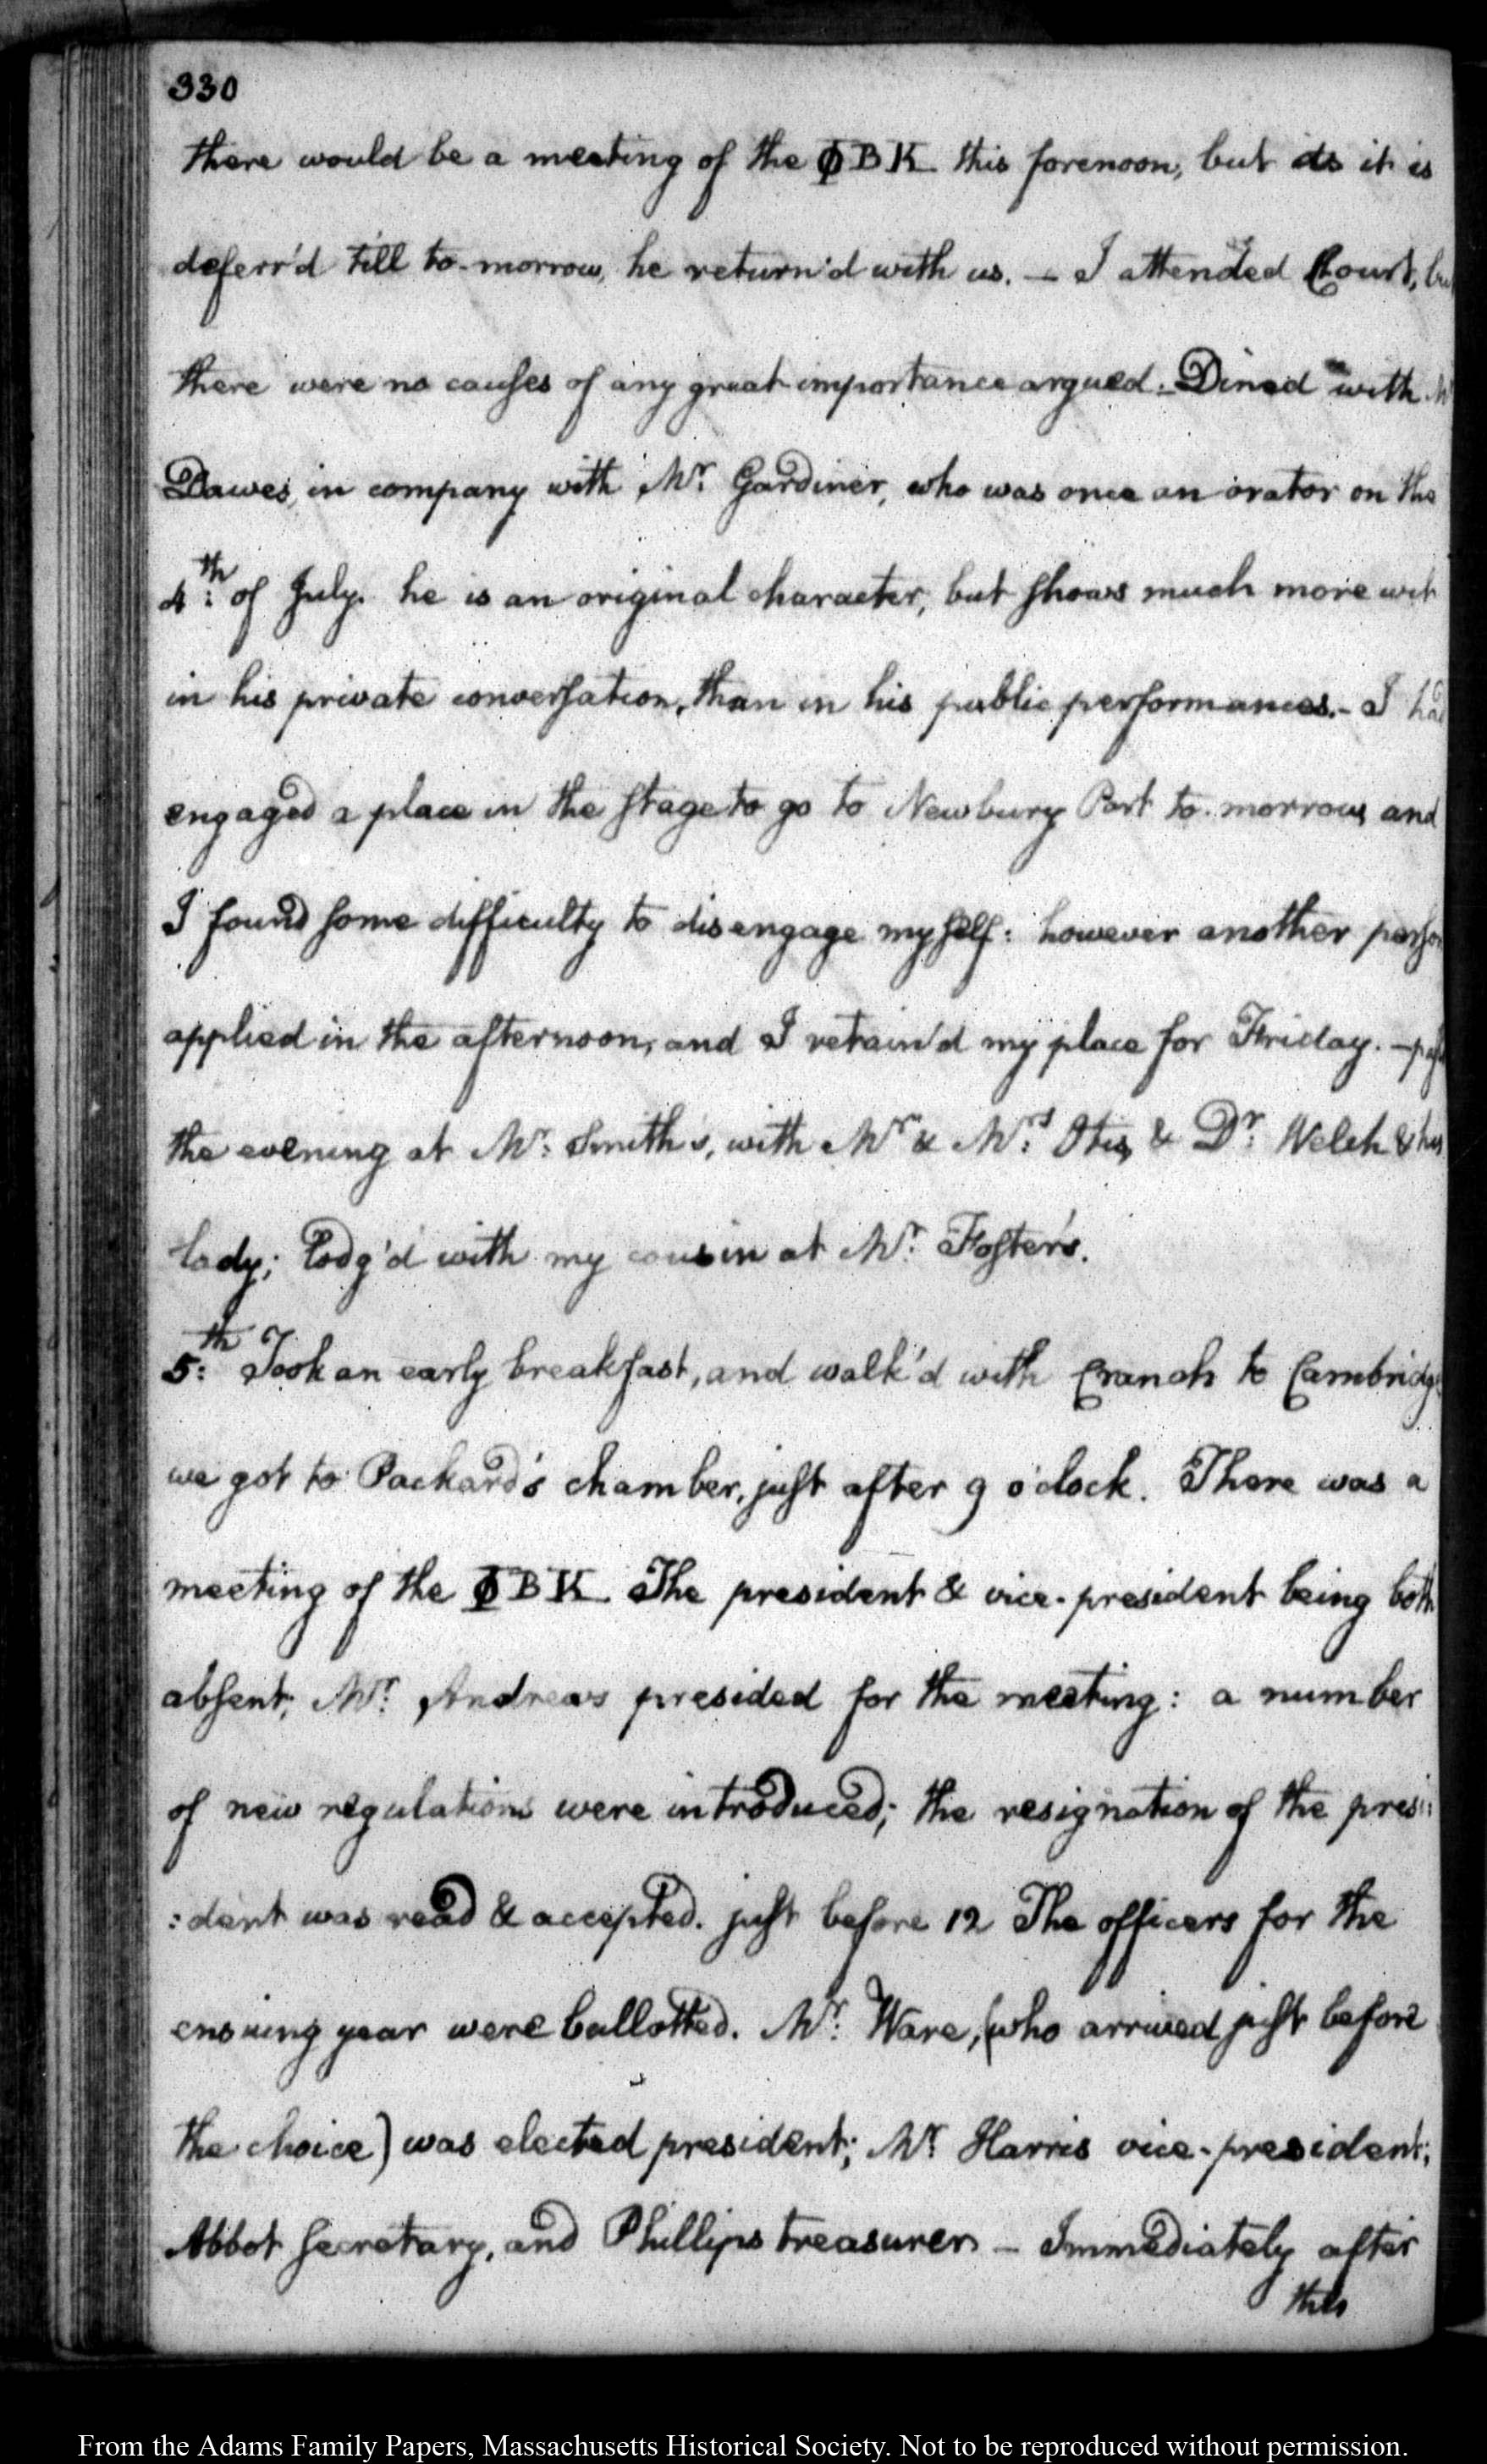 330
there would be a meeting of the ΦBK this forenoon, but as it is
deferr'd till to-morrow, he return'd with us. — I attended Court,
there were no causes of any great importance argued. — Dined with
Dawes, in company with Mr: Gardiner, who was once an orator on the
4th: of July. he is an original character, but shows much more wit
in his private conversation, than in his public performances. — I had
engaged a place in the stage to go to Newbury Port to-morrow, and
I found some difficulty to disengage myself: however another person
applied in the afternoon, and I retain'd my place for Friday. —
the evening at Mr: Smith's, with Mr: & Mrs: Otis, & Dr: Welch & his
lady; lodg'd with my cousin at Mr: Foster's.
5th: Took an early breakfast, and walk'd with Cranch to Cambridge
we got to Packard's chamber, just after 9 o'clock. There was a
meeting of the ΦBK. The president & vice-president being both
absent; Mr: Andrews presided for the meeting: a number
of new regulations were introduced; the resignation of the presi:
:dent was read & accepted. just before 12 The officers for the
ensuing year were ballotted. Mr: Ware, (who arrived just before
the choice) was elected president; Mr: Harris vice-president;
Abbot secretary, and Phillips treasurer. — Immediately after
this
From the Adams Family Papers, Massachusetts Historical Society. Not to be reproduced without permission.